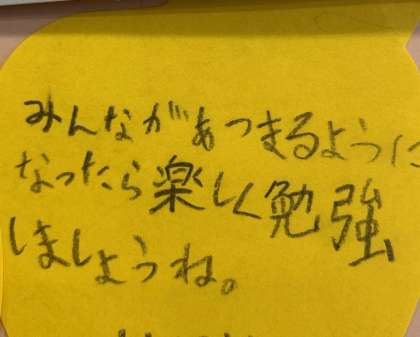 みんながあつまるように
なったら楽しく勉強
しましょうね。